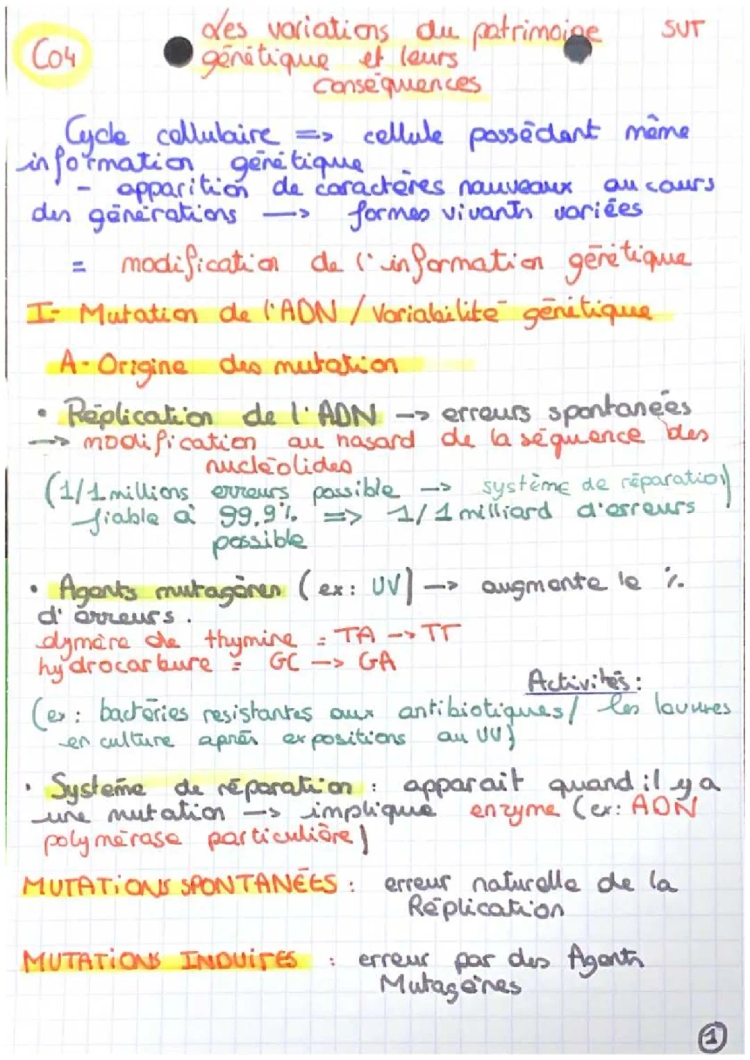 C04
Les variations du patrimoine
SVT
génétique et leurs
conséquences
Cycle cellulaire => cellule possèdent même
information génétique
- apparition de caractères nouveaux au cours
des générations -> formes vivants variées
= modification de l'information génétique
I- Mutation de l'ADN / Variabilité génétique
A- Origine des mutation
• Réplication de l'ADN -> erreurs spontanées
-> modification au hasard de la séquence des
nucléotides
(1/1 millions erreurs possible -> système de réparation)
fiable à 99,9% => 1/1 milliard d'erreurs
possible
• Agents mutagènes (ex: UV) -> augmente le %
d'erreurs.
dymère de thymine = TA -> TT
hydrocarbure = GC -> GA
Activités :
(ex: bactéries resistantes aux antibiotiques/ les levures
en culture après expositions au UV)
• Système de réparation : apparait quand il y a
une mutation -> implique enzyme (ex: ADN
polymérase particulière)
MUTATIONS SPONTANÉES : erreur naturelle de la
Réplication
MUTATIONS INDUITES : erreur par des Agents
Mutagènes
1